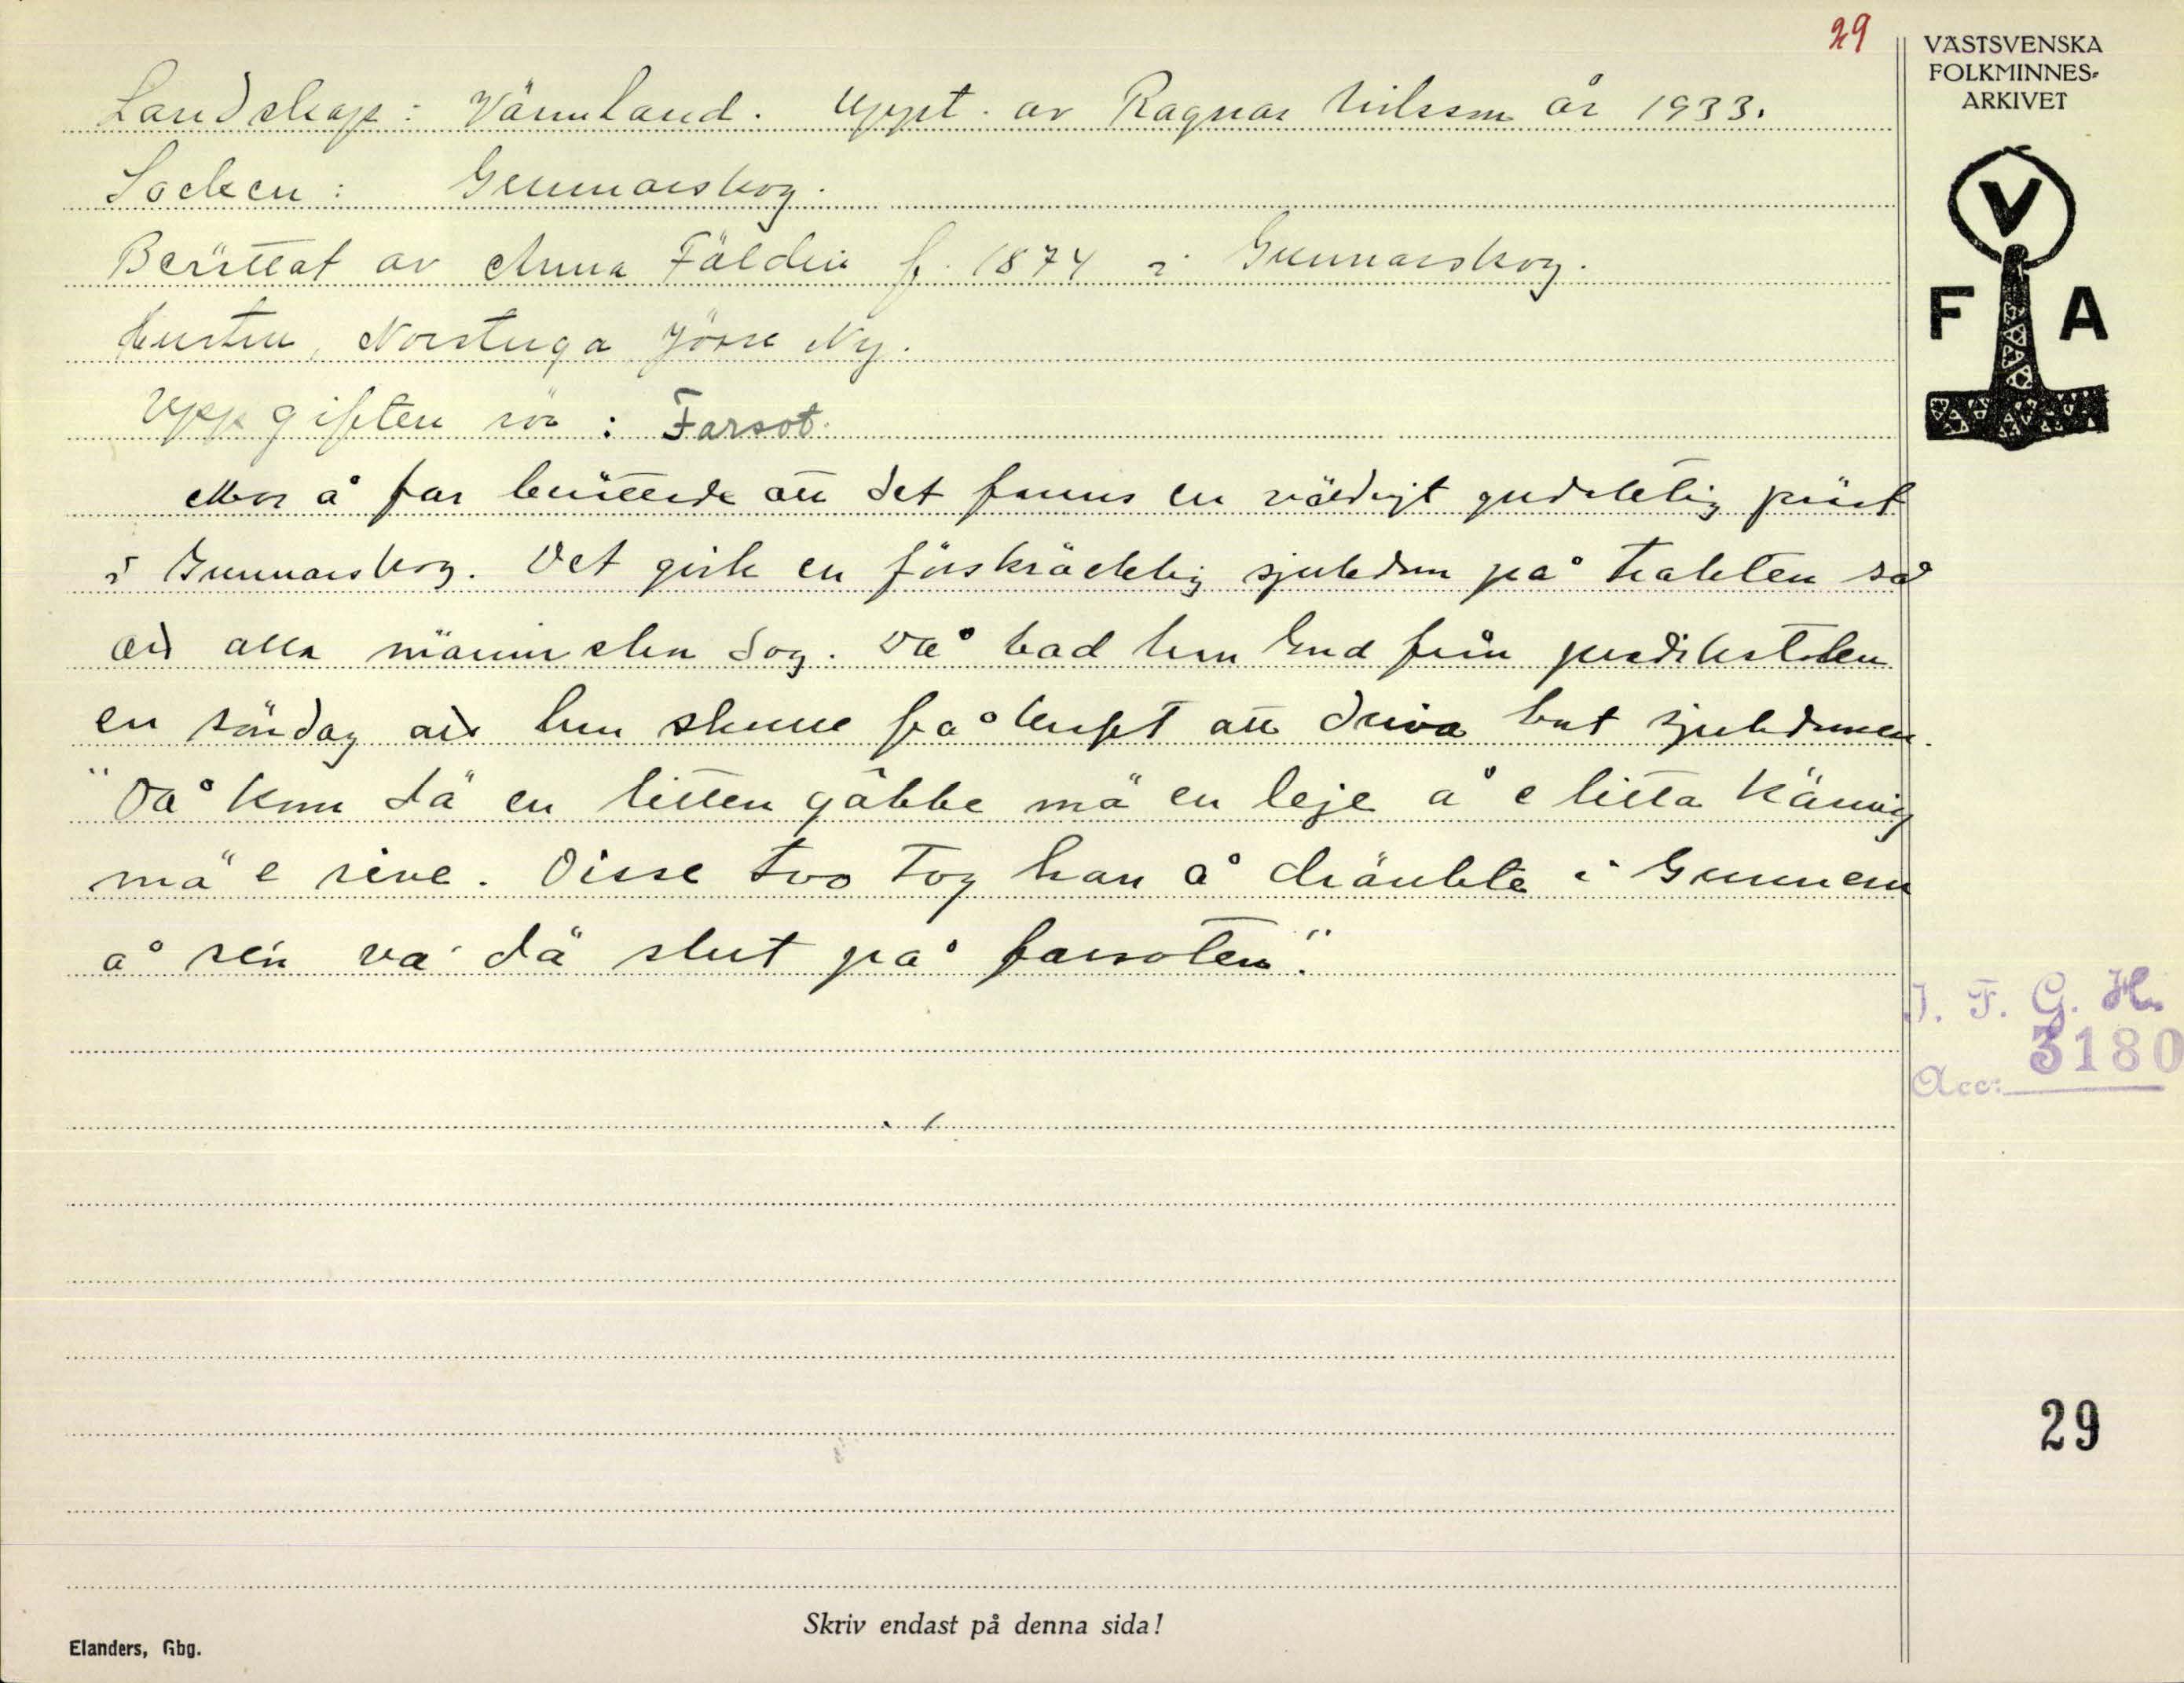 29
VÄSTSVENSKA
FOLKMINNES-
ARKIVET
Landskap: Värmland. Uppt. av Ragnar Nilsson år 1933.
Socken: Gunnarskog.
Berättat av Anna Fäldin f. 1874 i Gunnarskog.
Hustru, Norstuga Jösse Ny.
V
F A
Uppgiften rör: Farsot.
Mor å far berättade att det fanns en väldigt gudaktig präst
i Gunnarskog. Det gick en förskräcklig sjukdom på trakten så
att alla människor dog. Då bad han Gud från predikstolen
en söndag att han skulle få kraft att driva bort sjukdomen.
"Då kom dä en litten gåbbe mä en leje å e litta käring
mä e rive. Disse två tog han å dränkte i Gunnern
å sén va' dä slut på farsoten".
J. F. G. H.
3180
Acc:
29
Skriv endast på denna sida!
Elanders, Gbg.